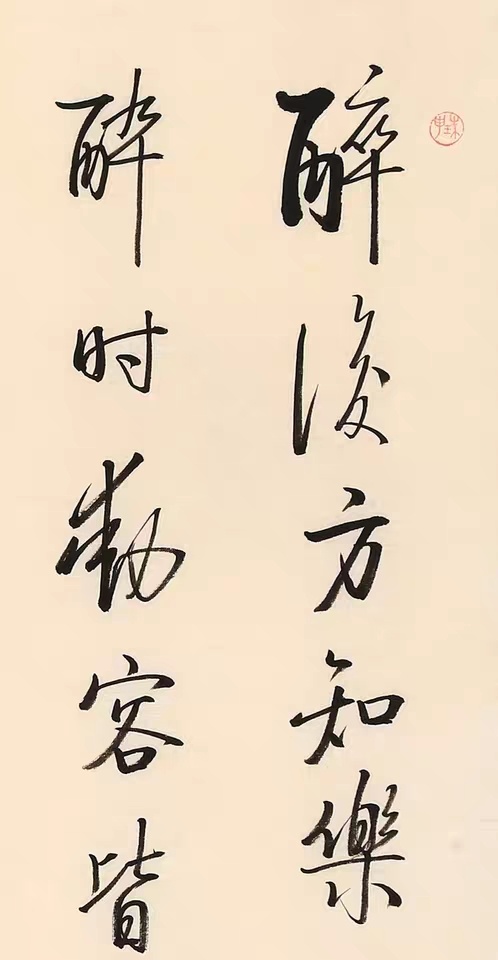 醉後方知樂
醉时動容皆